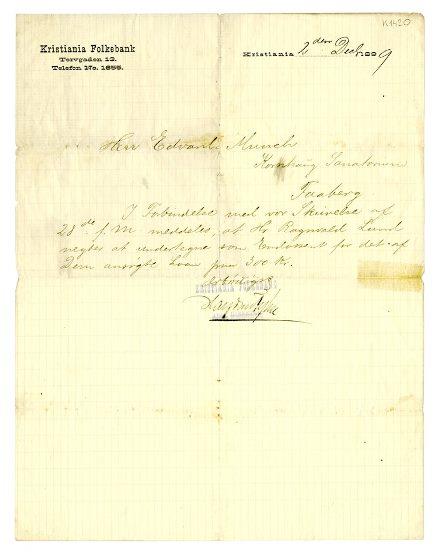 K1420
Kristiania Folkebank
Torvgaden 13.
Telefon No. 1655.
Kristiania 2 den Decb. 1899
Herr Edvard Munch
Kornhaug Sanatorium
Faaberg
I Forbindelse med vor Skrivelse af
28de f. M. meddeles, at Hr. Ragnvald Lund
negter at undertegne som Endossent for det af
Dem ansøgte Laan paa 300 Kr.
Ærbødigst
KRISTIANIA FOLKEBANK